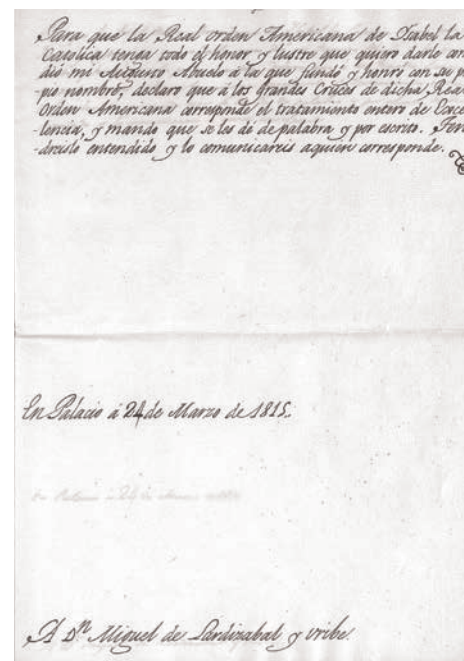 Para que la Real orden Americana de Isabel la
Catolica tenga todo el honor y lustre que quiero darle con
dio mi Augusto Abuelo à la que fundó y honró con su p
pio nombre, declaro que à los grandes Cruces de dicha Rea
Orden Americana corresponde el tratamiento entero de Exce
lencia, y mando que se les dé de palabra y por escrito. Ten
dreislo entendido y lo comunicareis aquien corresponde.
En Palacio à 24 de Marzo de 1815.
A Dn Miguel de Lardizabal y uribe